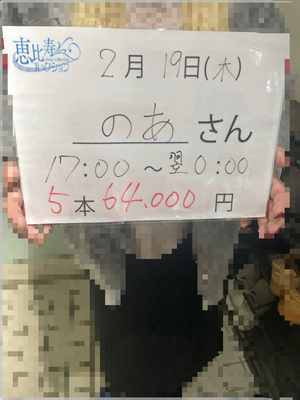 恵比寿
2月19日(木)
のあさん
17:00〜翌0:00
5本 64,000円